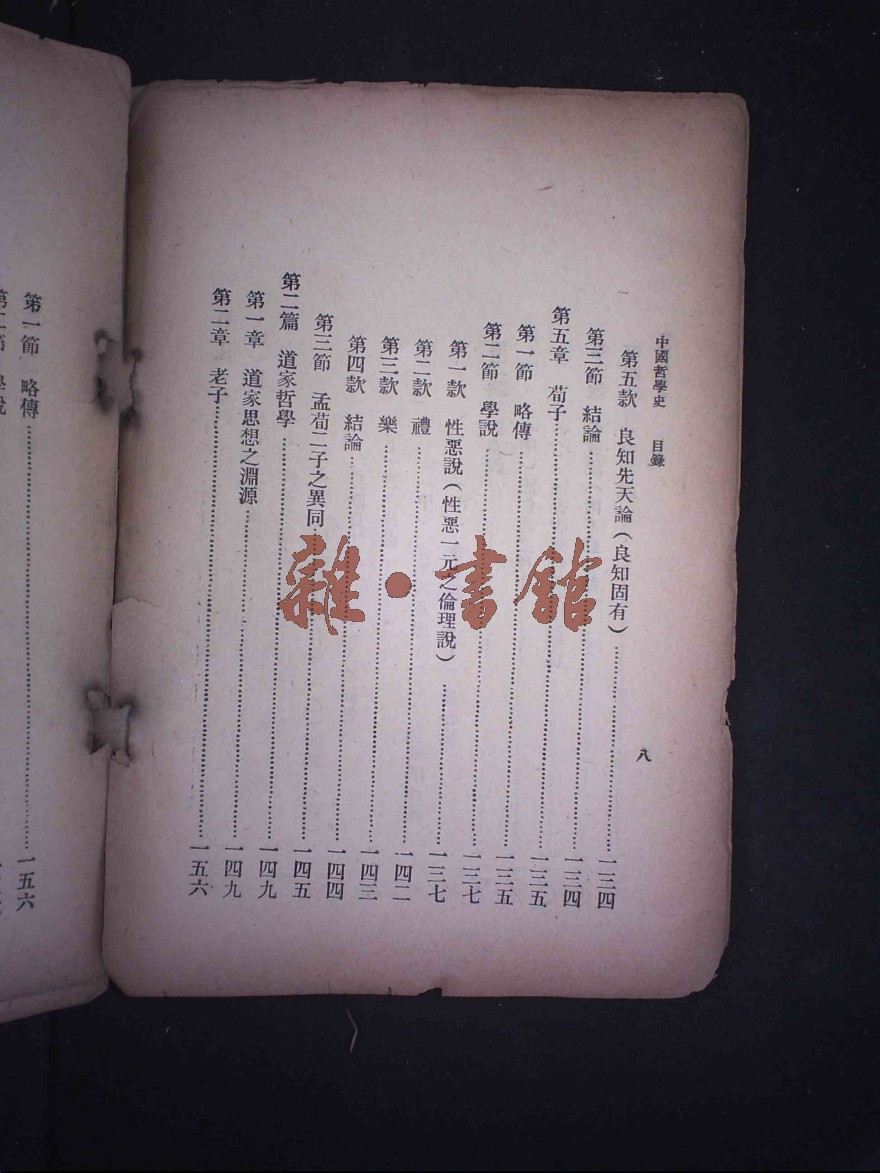 中國哲學史 目錄 八
第五款 良知先天論（良知固有）……一三四
第三節 結論……一三四
第五章 荀子……一三五
第一節 略傳……一三五
第二節 學說……一三七
第一款 性惡說（性惡一元之倫理說）……一三七
第二款 禮……一四二
第三款 樂……一四三
第四款 結論……一四四
第三節 孟荀二子之異同……一四五
第二篇 道家哲學……一四九
第一章 道家思想之淵源……一四九
第二章 老子……一五六
第一節 略傳……一五六
第二節 學說
雜·書館